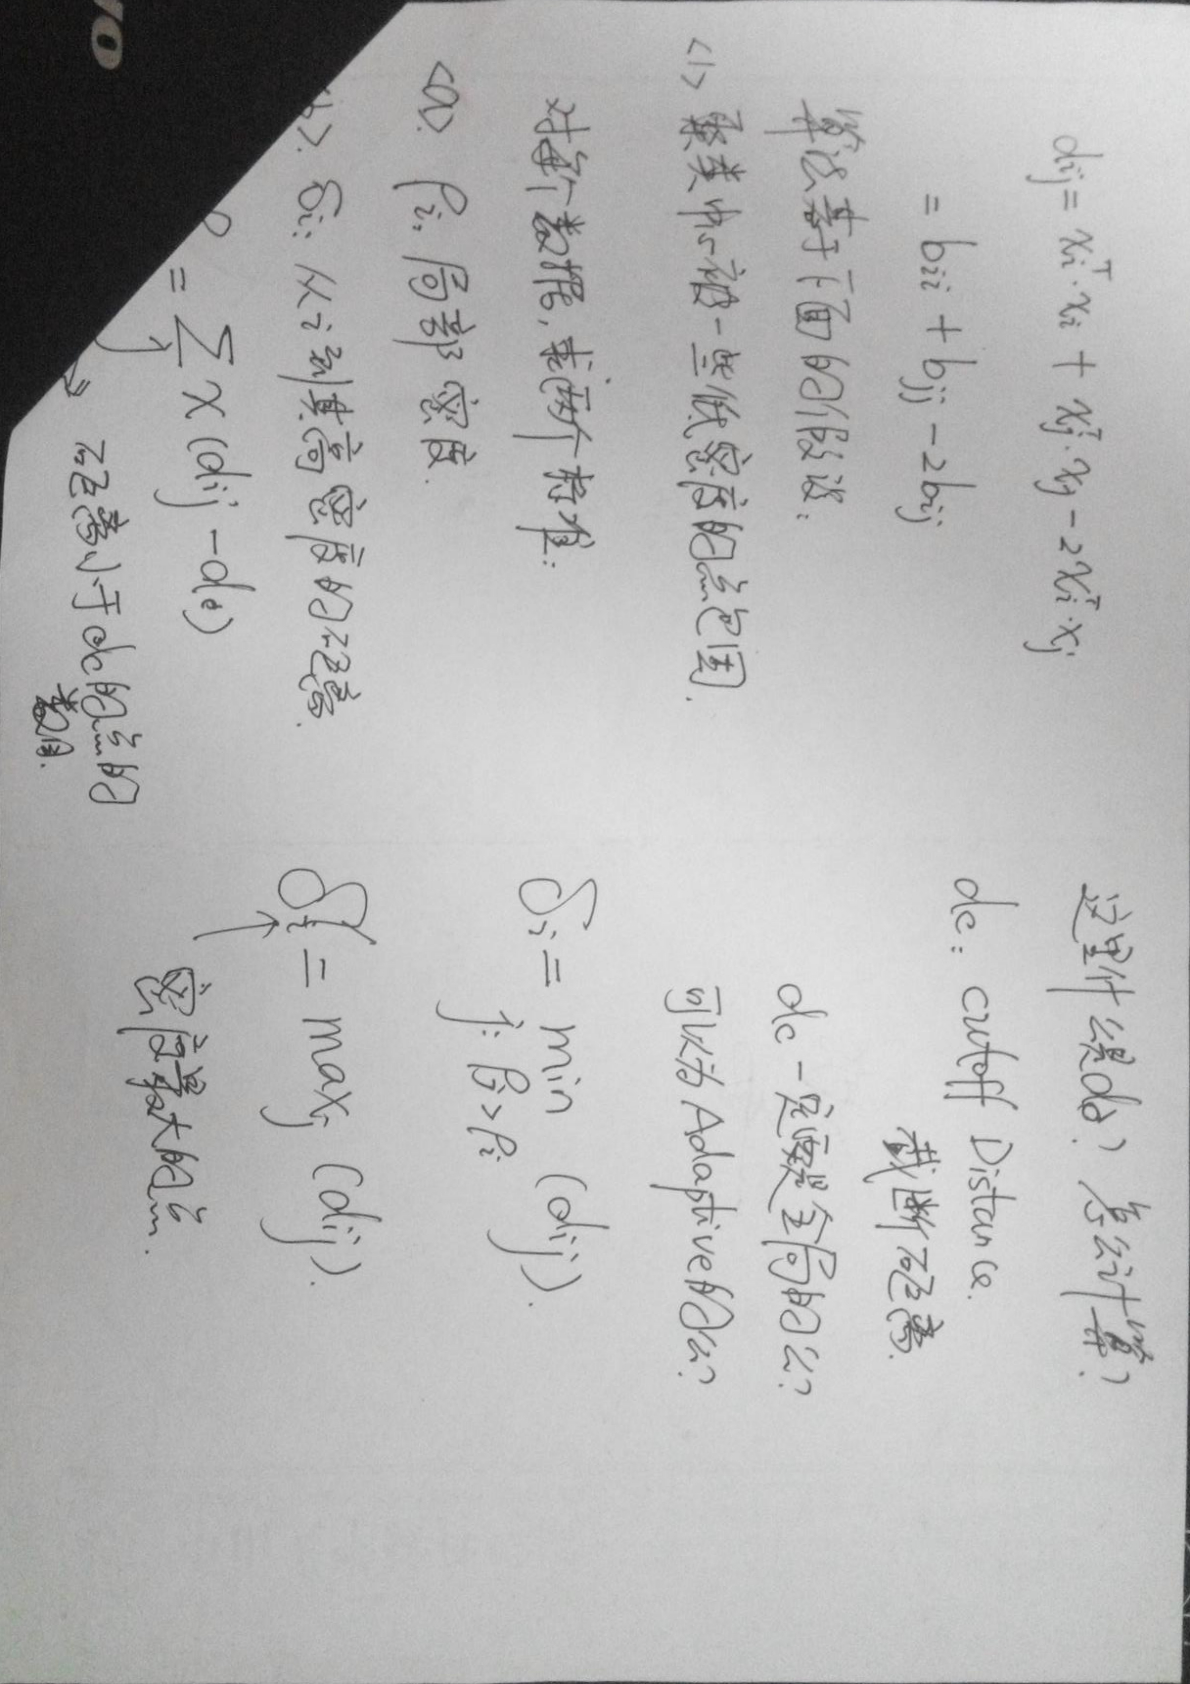 dij = xiᵀ·xi + xjᵀ·xj - 2xiᵀ·xj
= bii + bjj - 2bij
算法基于下面的假设:
<1> 聚类中心被一些低密度的点包围.
对每个数据, 求两个标准:
<a>. ρi, 局部密度.
<b>. δi: 从i到其高密度的距离.
ρ = Σj χ(dij - dc)
距离小于dc的点的
数目.
这里什么是dc? 怎么计算?
dc: cutoff Distance.
截断距离.
dc 一定要是全局的么?
可以为Adaptive的么?
δi = min (dij).
j: ρj > ρi
δi = maxj (dij).
密度最大的点.